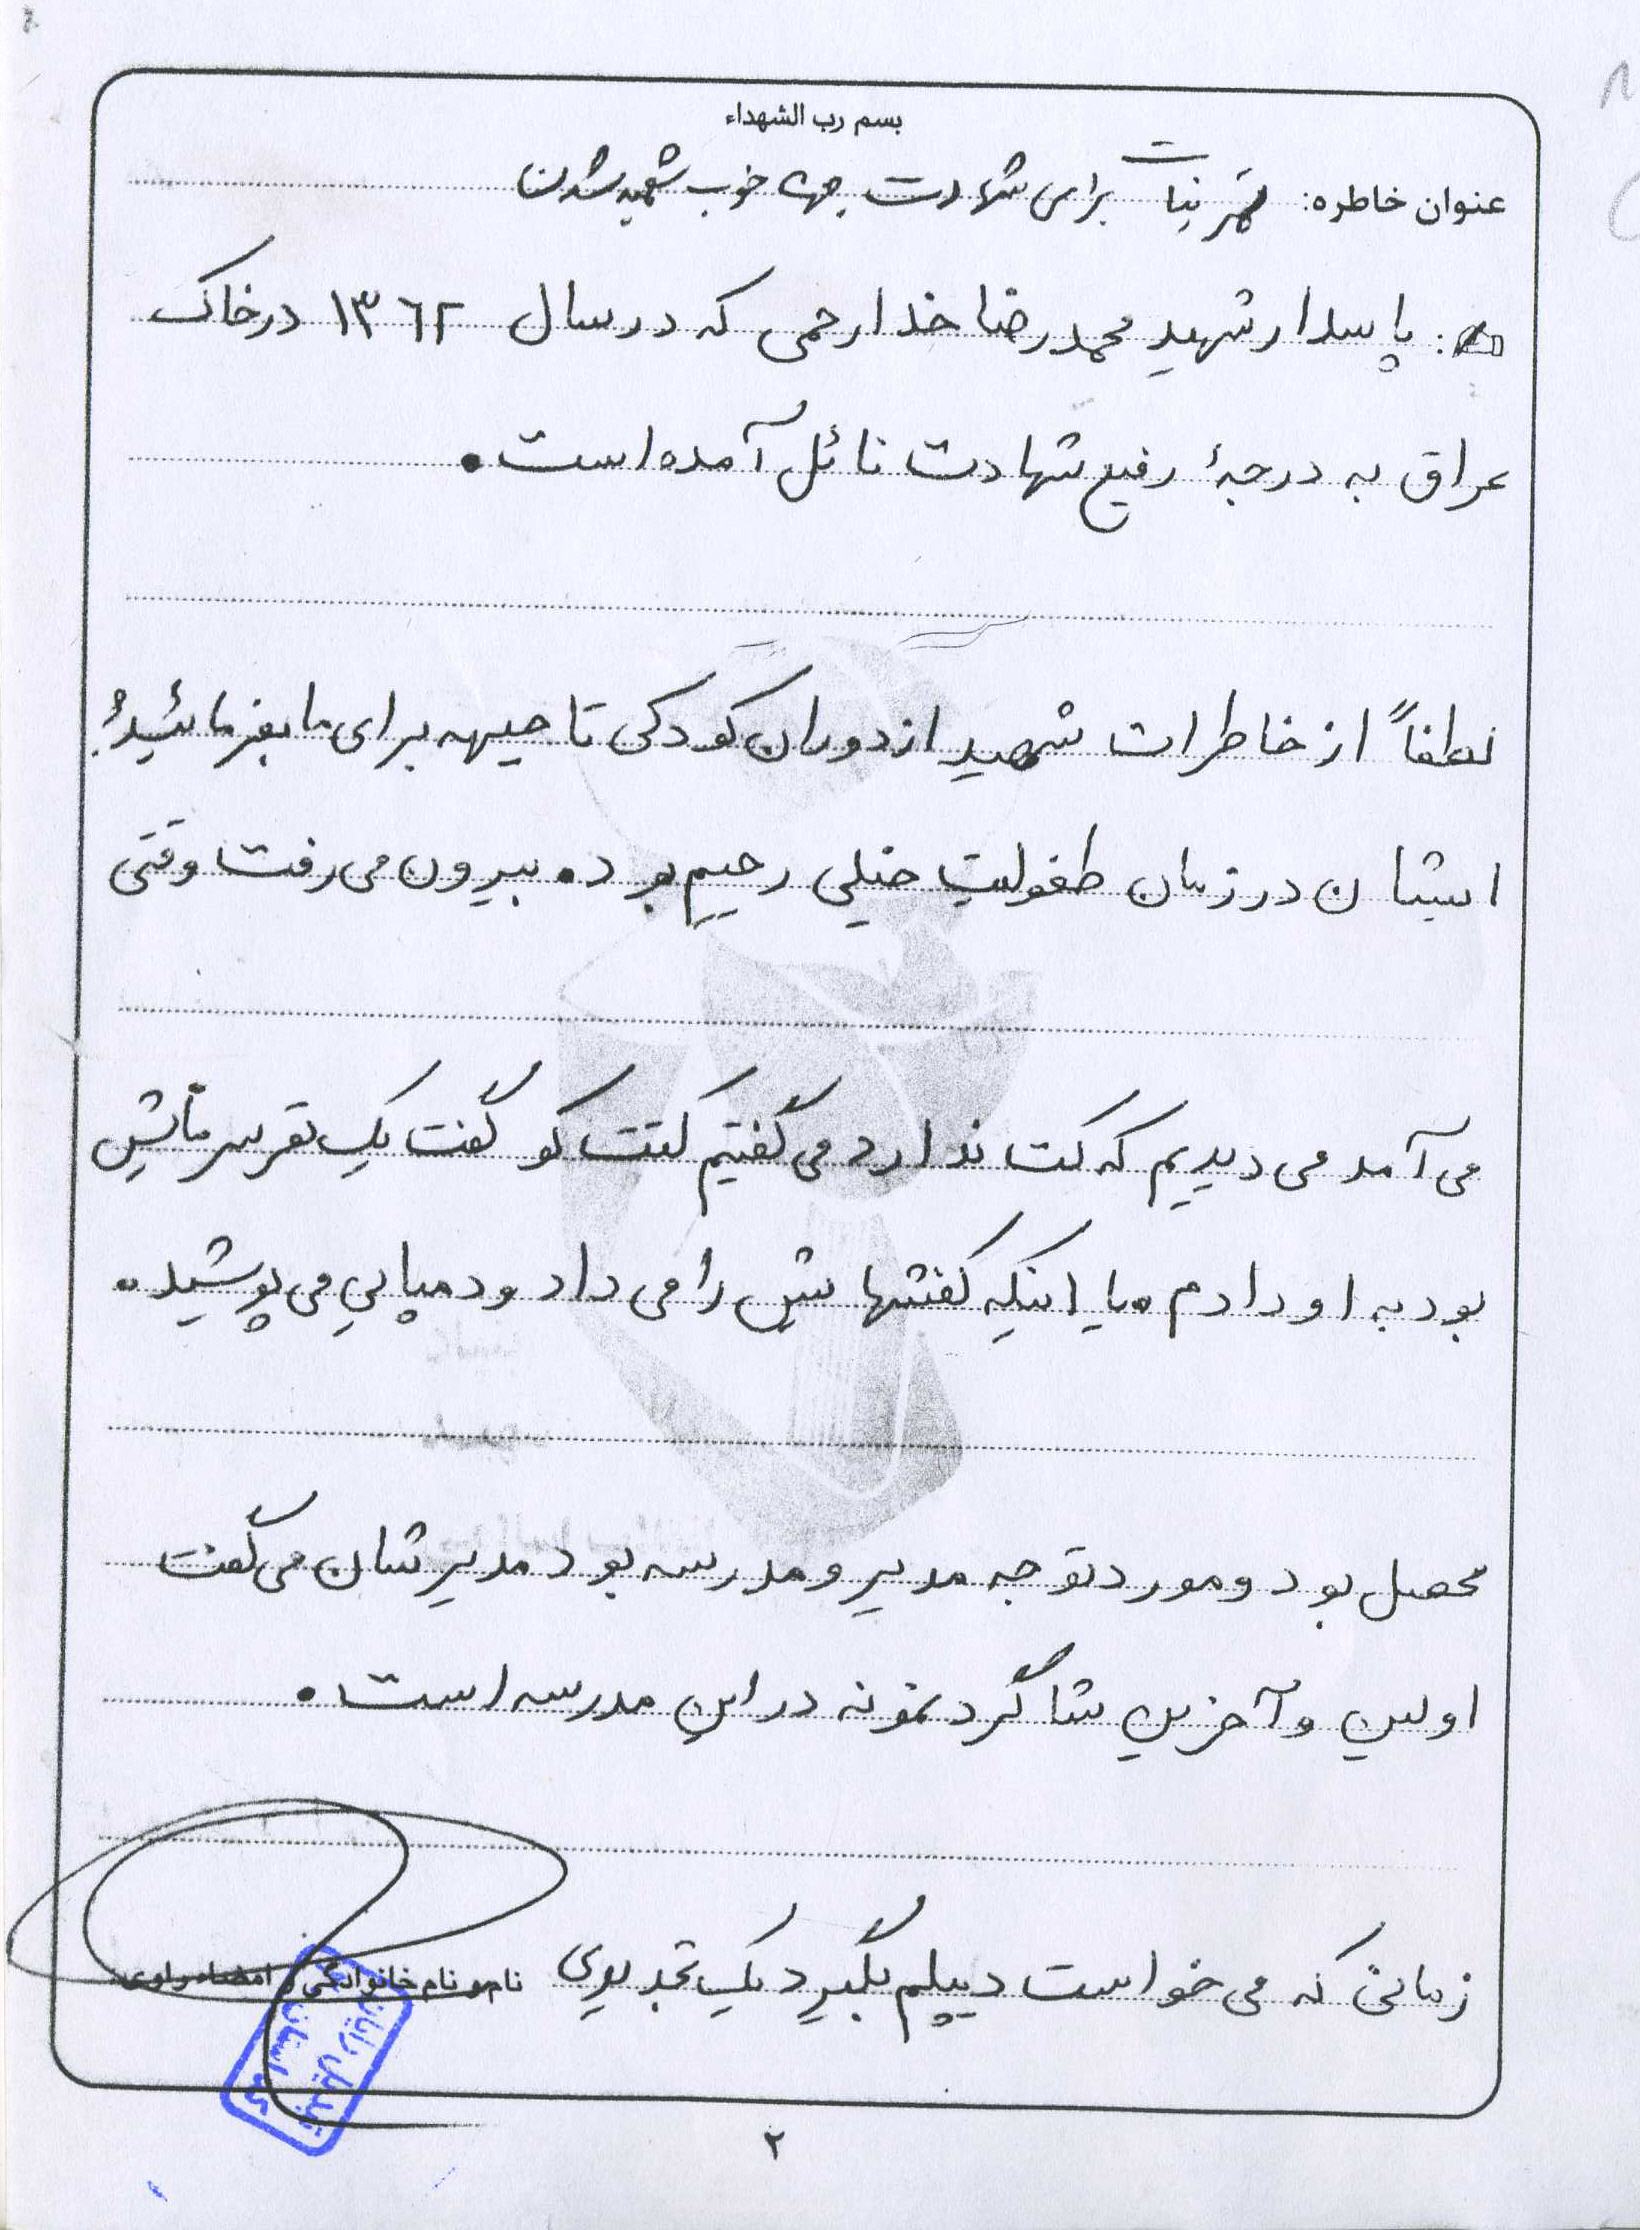 بسم رب الشهداء
عنوان خاطره: تمرینات برای شهادت جهت خوب شهید شدن
: پاسدار شهید محمدرضا خدارحمی که در سال ۱۳۶۲ در خاک
عراق به درجهٔ رفیع شهادت نائل آمده است.
لطفاً از خاطرات شهید از دوران کودکی تا جبهه برای ما بفرمائید؟
ایشان در زمان طفولیت خیلی رحیم بود. بیرون می‌رفت وقتی
می‌آمد می‌دیدیم که کت ندارد می‌گفتیم کتت کو گفت یک نفر سرماش
بود به او دادم. یا اینکه کفشهایش را می‌داد و دمپایی می‌پوشید.
محصل بود و مورد توجه مدیر و مدرسه بود مدیرشان می‌گفت
اولین و آخرین شاگرد نمونه در این مدرسه است.
زمانی که می‌خواست دیپلم بگیرد یک تجدیدی
نام و نام خانوادگی و امضاء راوی
۲